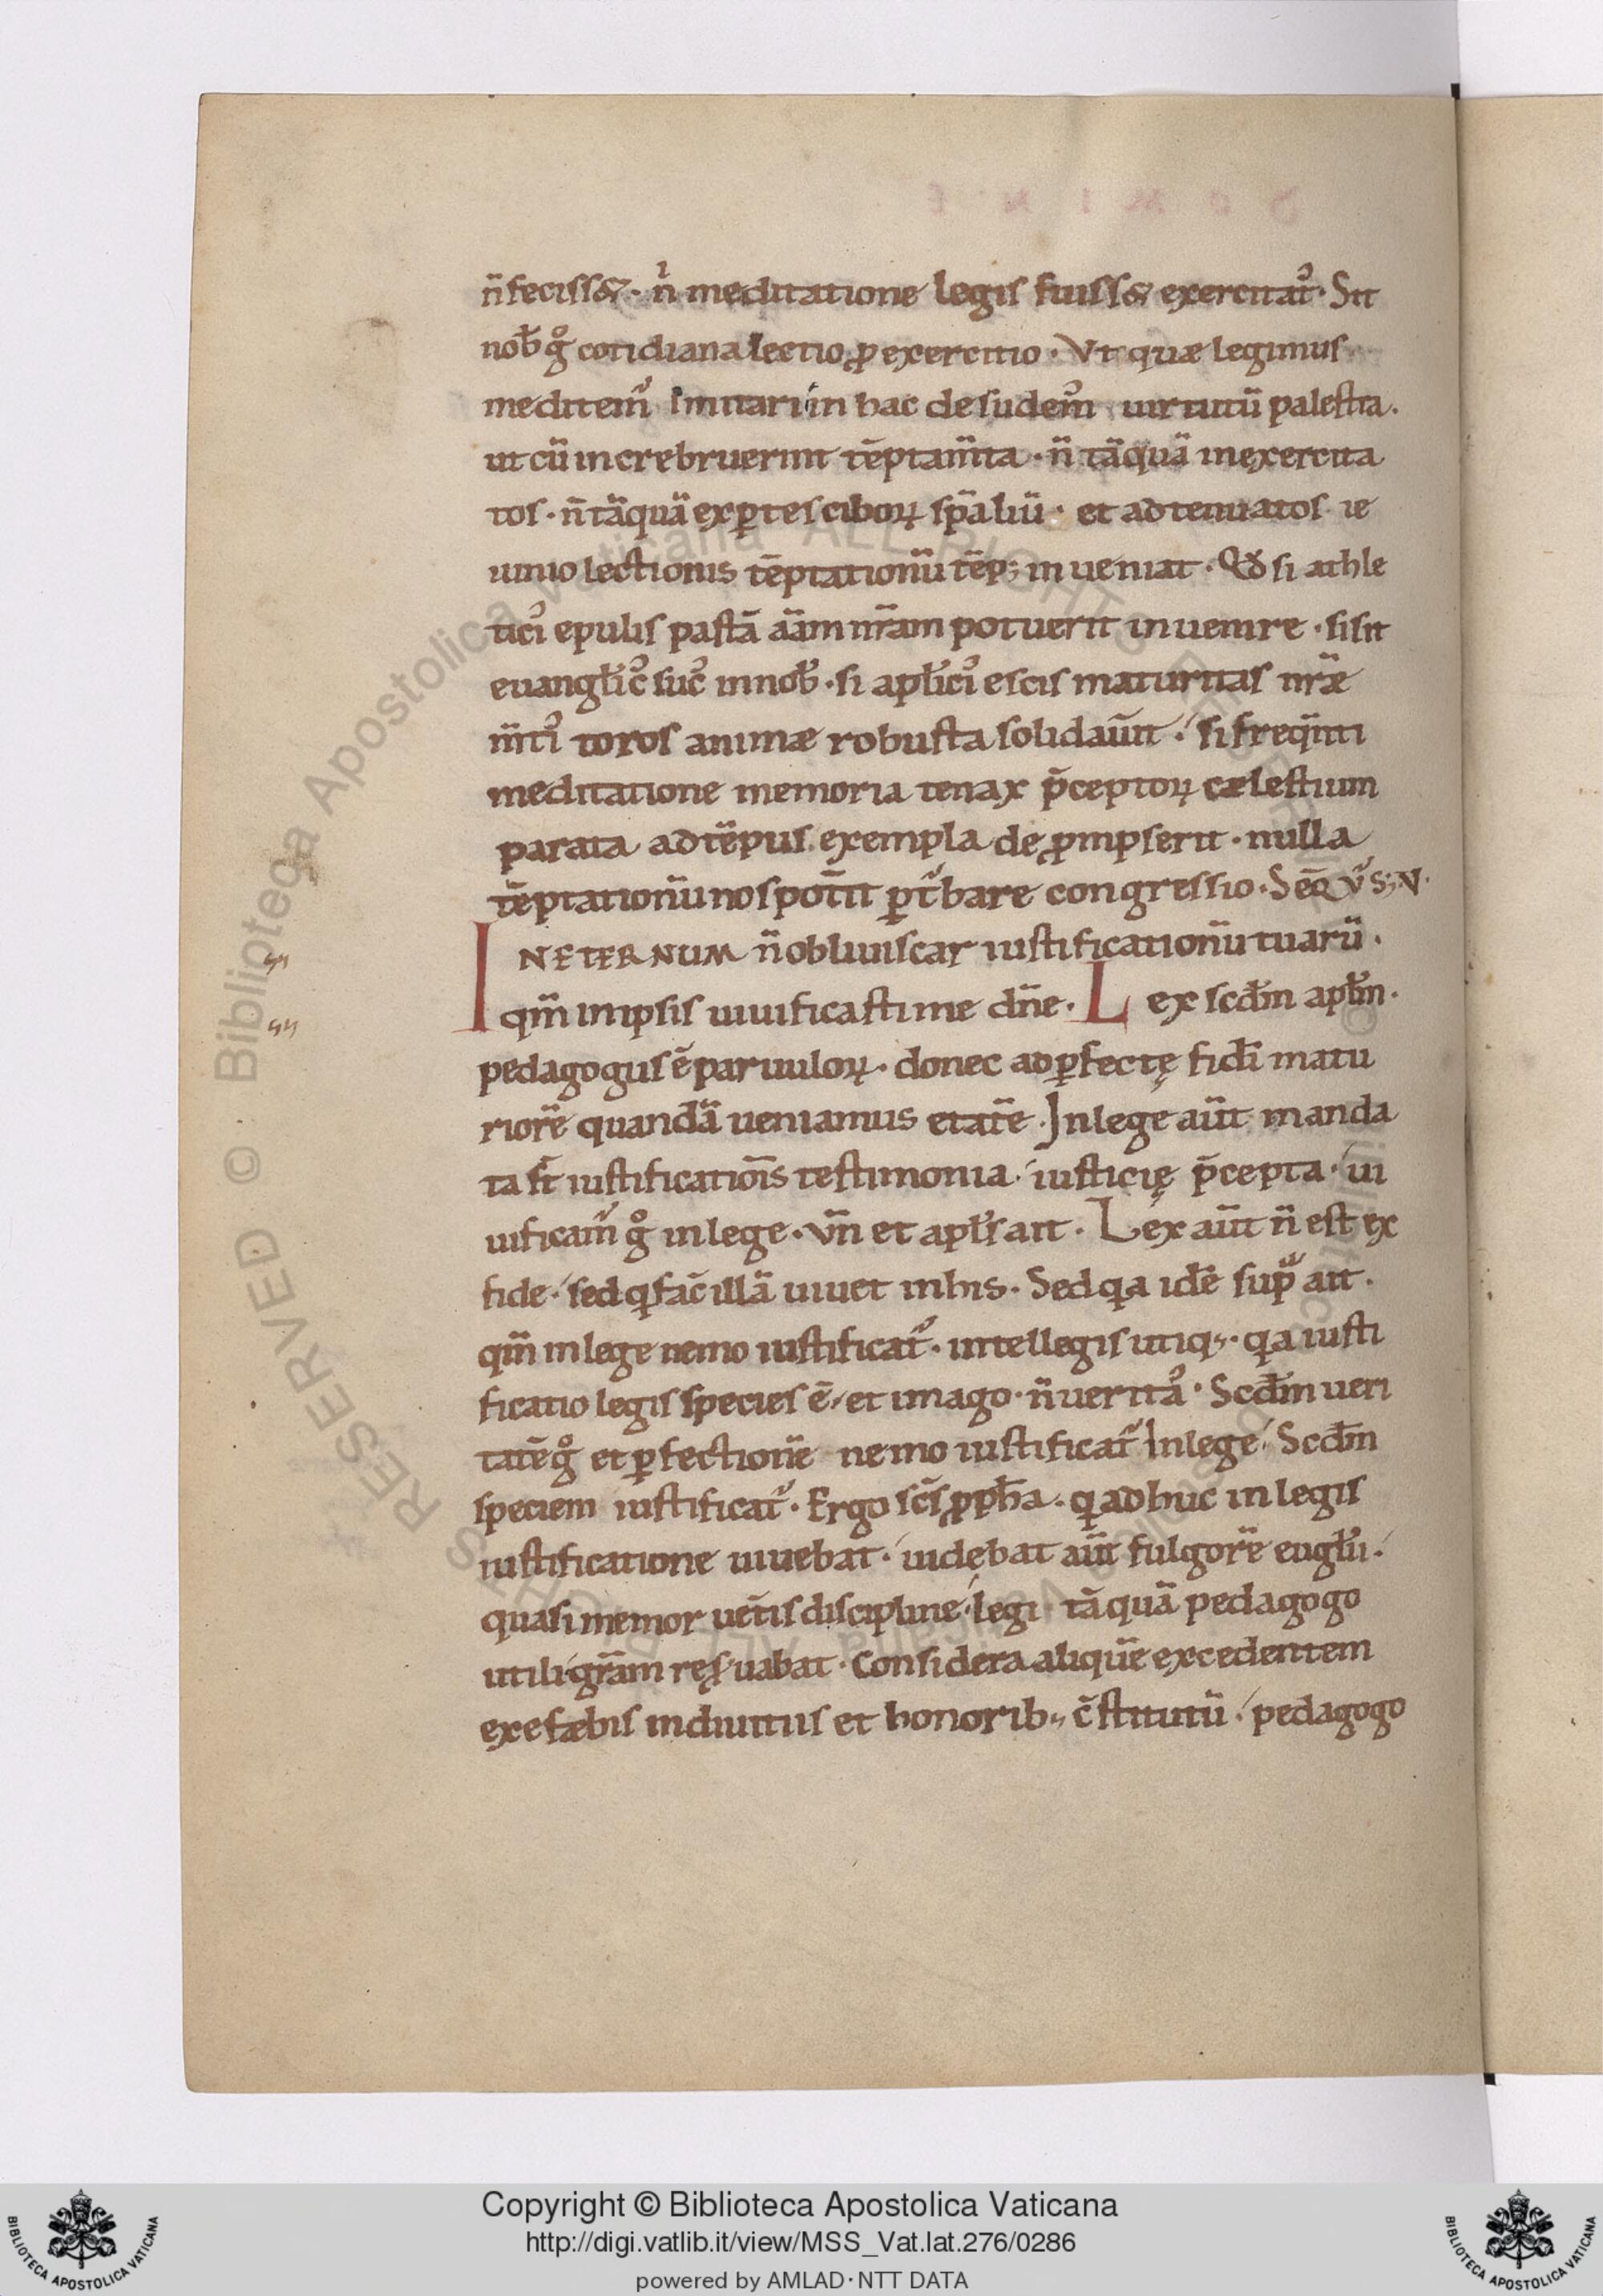 n̄ fecisset · nͥ meditatione legis fuisset exercitat᷒ · Sit
nob̄ gͦ cotidiana lectio ꝓ exercitio · Vt quæ legimus
meditem᷒ imitari in hac desudem᷒ uirtutū palestra ·
ut cū increbruerint tēptam̄ta · n̄ tāquā inexercita
tos · n̄ tāquā exꝑtes ciboꝝ sp̄aliū · et adtenuatos ie
iunio lectionis tēptationū tēp; inueniat · Qd̄ si athle
tici᷒ epulis pastā aām nr̄am potuerit inuenire · si sit
euangl̄ic᷒ suc᷒ in nob̄ · si apl̄ici᷒ escis maturitas nr̄æ
m̄ti᷒ toros animæ robusta solidau̅it · si freq̄nti
meditatione memoria tenax p̄ceptoꝝ cælestium
parata ad tēpus exempla de ꝓmpserit · nulla
tēptationū nos pot̄it ꝑt᷑bare congressio · Seq̄ v᷑s; · V ·
INETERNUM n̄ obliuiscar iustificationū tuarū ·
qm̄ in ipsis uiuificasti me dn̄e · Lex scd̄m apl̄m ·
pedagogus ē paruuloꝝ · donec ad ꝑfectę fid̄i matu
riorē quandā ueniamus etatē · In lege aūt manda
ta st̄ iustificatiōis testimonia · iusticię p̄cepta · ui
uificam᷑ gͦ in lege · vn̄ et apl̄s ait · Lex aūt n̄ est ex
fide · sed q̇ fac̄ illā uiuet in his · Sed qa idē sup᷑ ait ·
qm̄ in lege nemo iustificat᷑ · intellegis utiq; · qa iusti
ficatio legis species ē · et imago · n̄ uerita᷒ · Scd̄m ueri
tatē gͦ et ꝑfectionē nemo iustificat᷑ in lege · Scd̄m
speciem iustificat᷑ · Ergo sc̄s ꝓph̄a · q adhuc in legis
iustificatione uiuebat · uidebat aūt fulgorē eugl̄ii ·
quasi memor uet̄is discipline · legi tāquā pedagogo
utili gr̄am res᷑uabat · Considera aliquē excedentem
ex efæbis in diuitiis et honorib; c̄stitutū · pedagogo
Copyright © Biblioteca Apostolica Vaticana
http://digi.vatlib.it/view/MSS_Vat.lat.276/0286
powered by AMLAD·NTT DATA
BIBLIOTECA APOSTOLICA VATICANA
BIBLIOTECA APOSTOLICA VATICANA